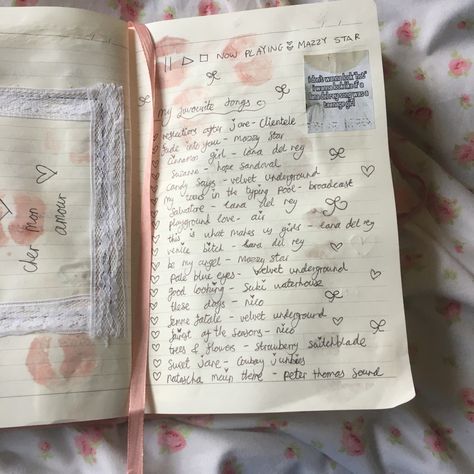 cher mon
amour
NOW PLAYING MAZZY STAR
My favourite songs
reflections after jane - Clientele
fade into you - mazzy star
cinnamon girl - lana del rey
suzanne - hope sandoval
candy says - velvet underground
my colours in the typing pool - broadcast
salvatore - lana del rey
playground love - air
this is what makes us girls - lana del rey
venice bitch - lana del rey
be my angel - mazzy star
pale blue eyes - velvet underground
good looking - suki waterhouse
these days - nico
femme fatale - velvet underground
of the seasons - nico
trees & flowers - strawberry switchblade
sweet jane - cowboy junkies
natascha theme - peter thomas sound
i don't wanna look "hot"
i wanna look like if a
lana del rey song was a
teenage girl